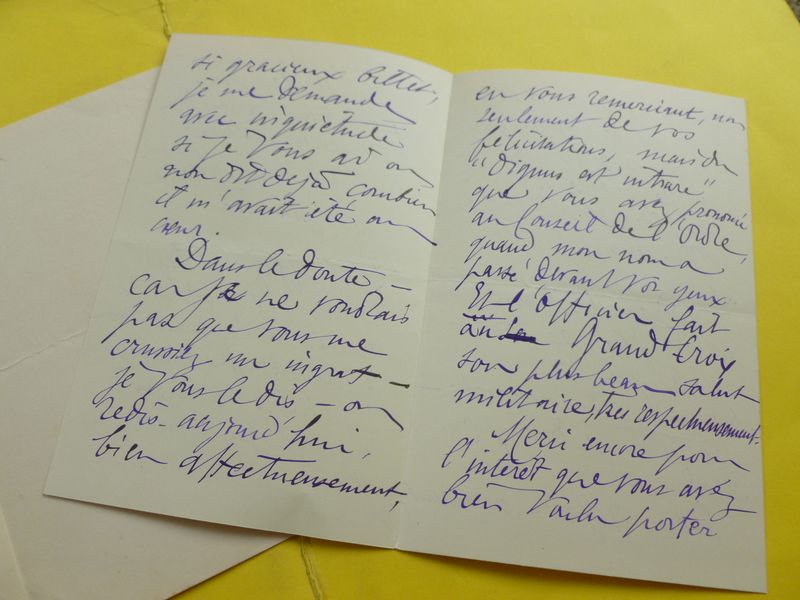 si gracieux billet,
je me demande
avec inquiétude
si je vous ai ou
non dit déjà combien
il m'avait été au
cœur.
Dans le doute, —
car je ne voudrais
pas que vous me
crussiez un ingrat —
je vous le dis — ou
redis — aujourd'hui,
bien affectueusement,
en vous remerciant, non
seulement de vos
félicitations, mais du
"dignus est intrare"
que vous avez prononcé
au Conseil de l'Ordre,
quand mon nom a
passé devant vos yeux
Et l'Officier fait
au Grand Croix
son plus beau salut
militaire, très respectueusement.
Merci encore pour
l'intérêt que vous avez
bien voulu porter